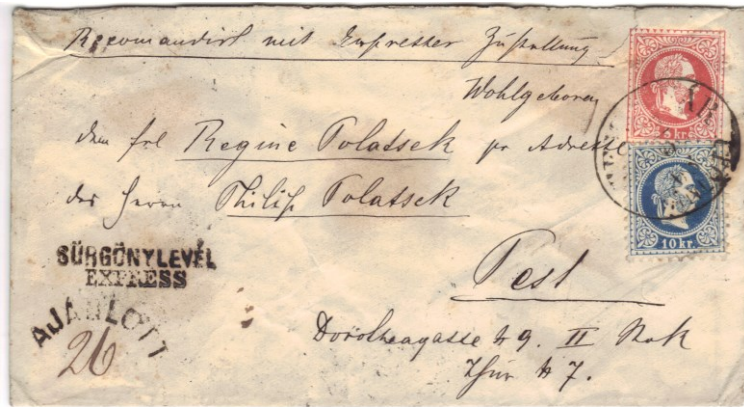 Recomandirt mit Expresser Zustellung
Wohlgeboren
dem frl Regine Polatsek pr Adresse
des Herrn Philip Polatsek
Pest
Dorotheagasse 9. II Stok
Thür 7.
SÜRGÖNYLEVÉL
EXPRESS
AJÁNLOTT
26
5 kr.
10 kr.